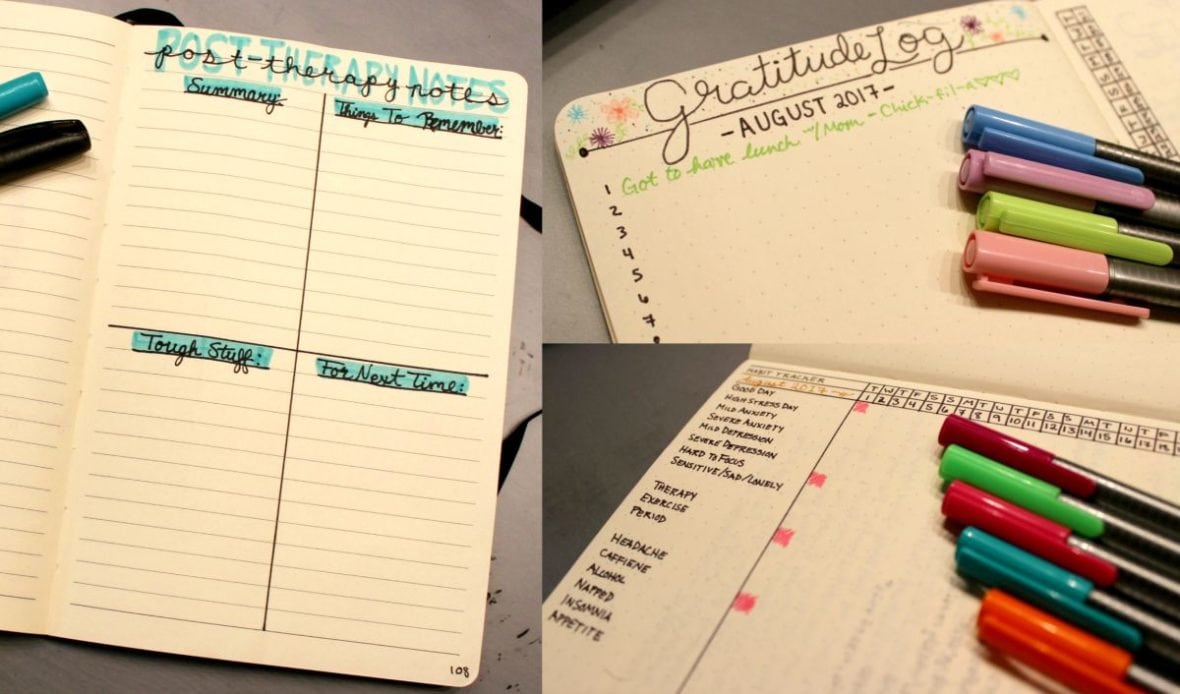 POST-THERAPY NOTES
post-therapy notes
Summary:
Things To Remember:
Tough Stuff:
For Next Time:
108
Gratitude Log
-AUGUST 2017-
1 Got to have lunch w/Mom - Chick-fil-a♡♡♡♡
2
3
4
5
6
7
HABIT TRACKER
August 2017
T W T F S S M T W T F S S M T W T F
1 2 3 4 5 6 7 8 9 10 11 12 13 14 15 16 17 18
GOOD DAY
HIGH STRESS DAY
MILD ANXIETY
SEVERE ANXIETY
MILD DEPRESSION
SEVERE DEPRESSION
HARD TO FOCUS
SENSITIVE/SAD/LONELY
THERAPY
EXERCISE
PERIOD
HEADACHE
CAFFIENE
ALCOHOL
NAPPED
INSOMNIA
APPETITE